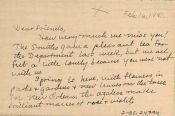 Feb. 14, 195
Dear Friends,
How very much we miss you!
The Smiths gave a pleasant tea for
the Department last week, but we all
felt a little lonely because you were not
with us.
Spring is here, with flowers in
parks & gardens & new leaves on the trees
the azaleas make
brilliant masses of rose & white